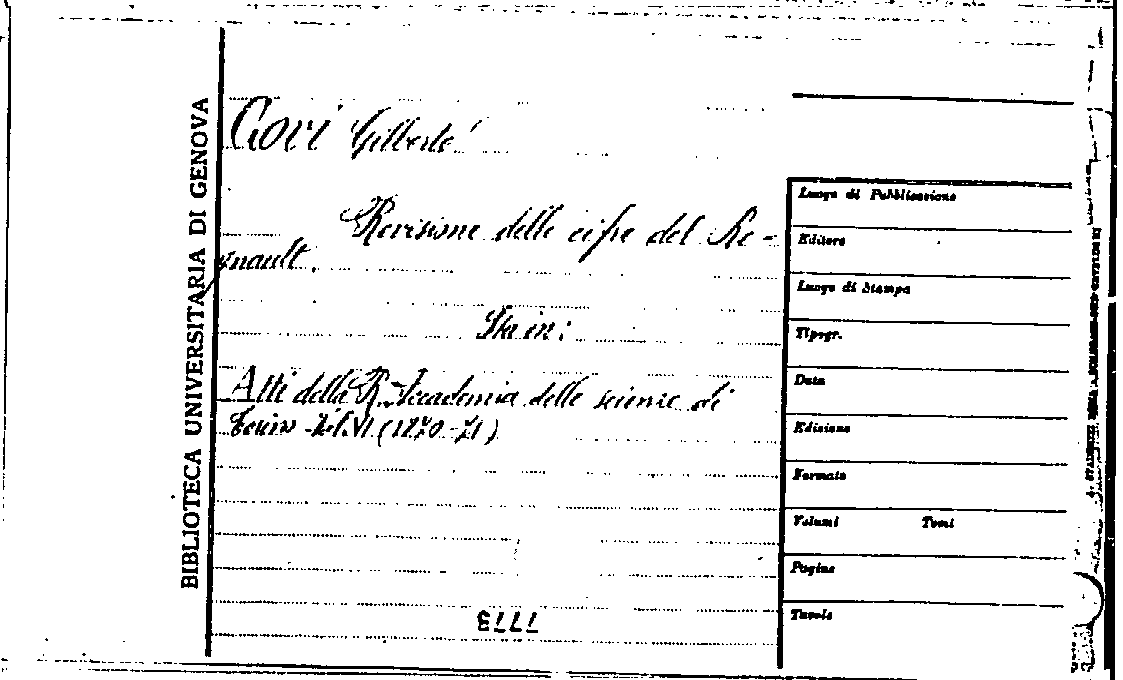 BIBLIOTECA UNIVERSITARIA DI GENOVA
Govi Gilberto
Revisione delle cifre del Re-
gnault.
Sta in:
Atti della R. Accademia delle scienze di
Torino Vol. VI (1870-71)
7773
Luogo di Pubblicazione
Editore
Luogo di Stampa
Tipogr.
Data
Edizione
Formato
Volumi Tomi
Pagine
Tavole